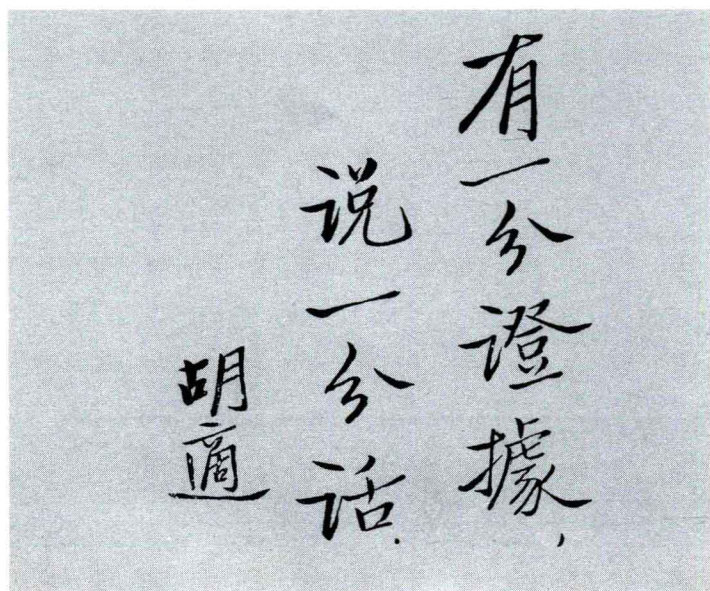 有一分證據，
说一分话.
胡適